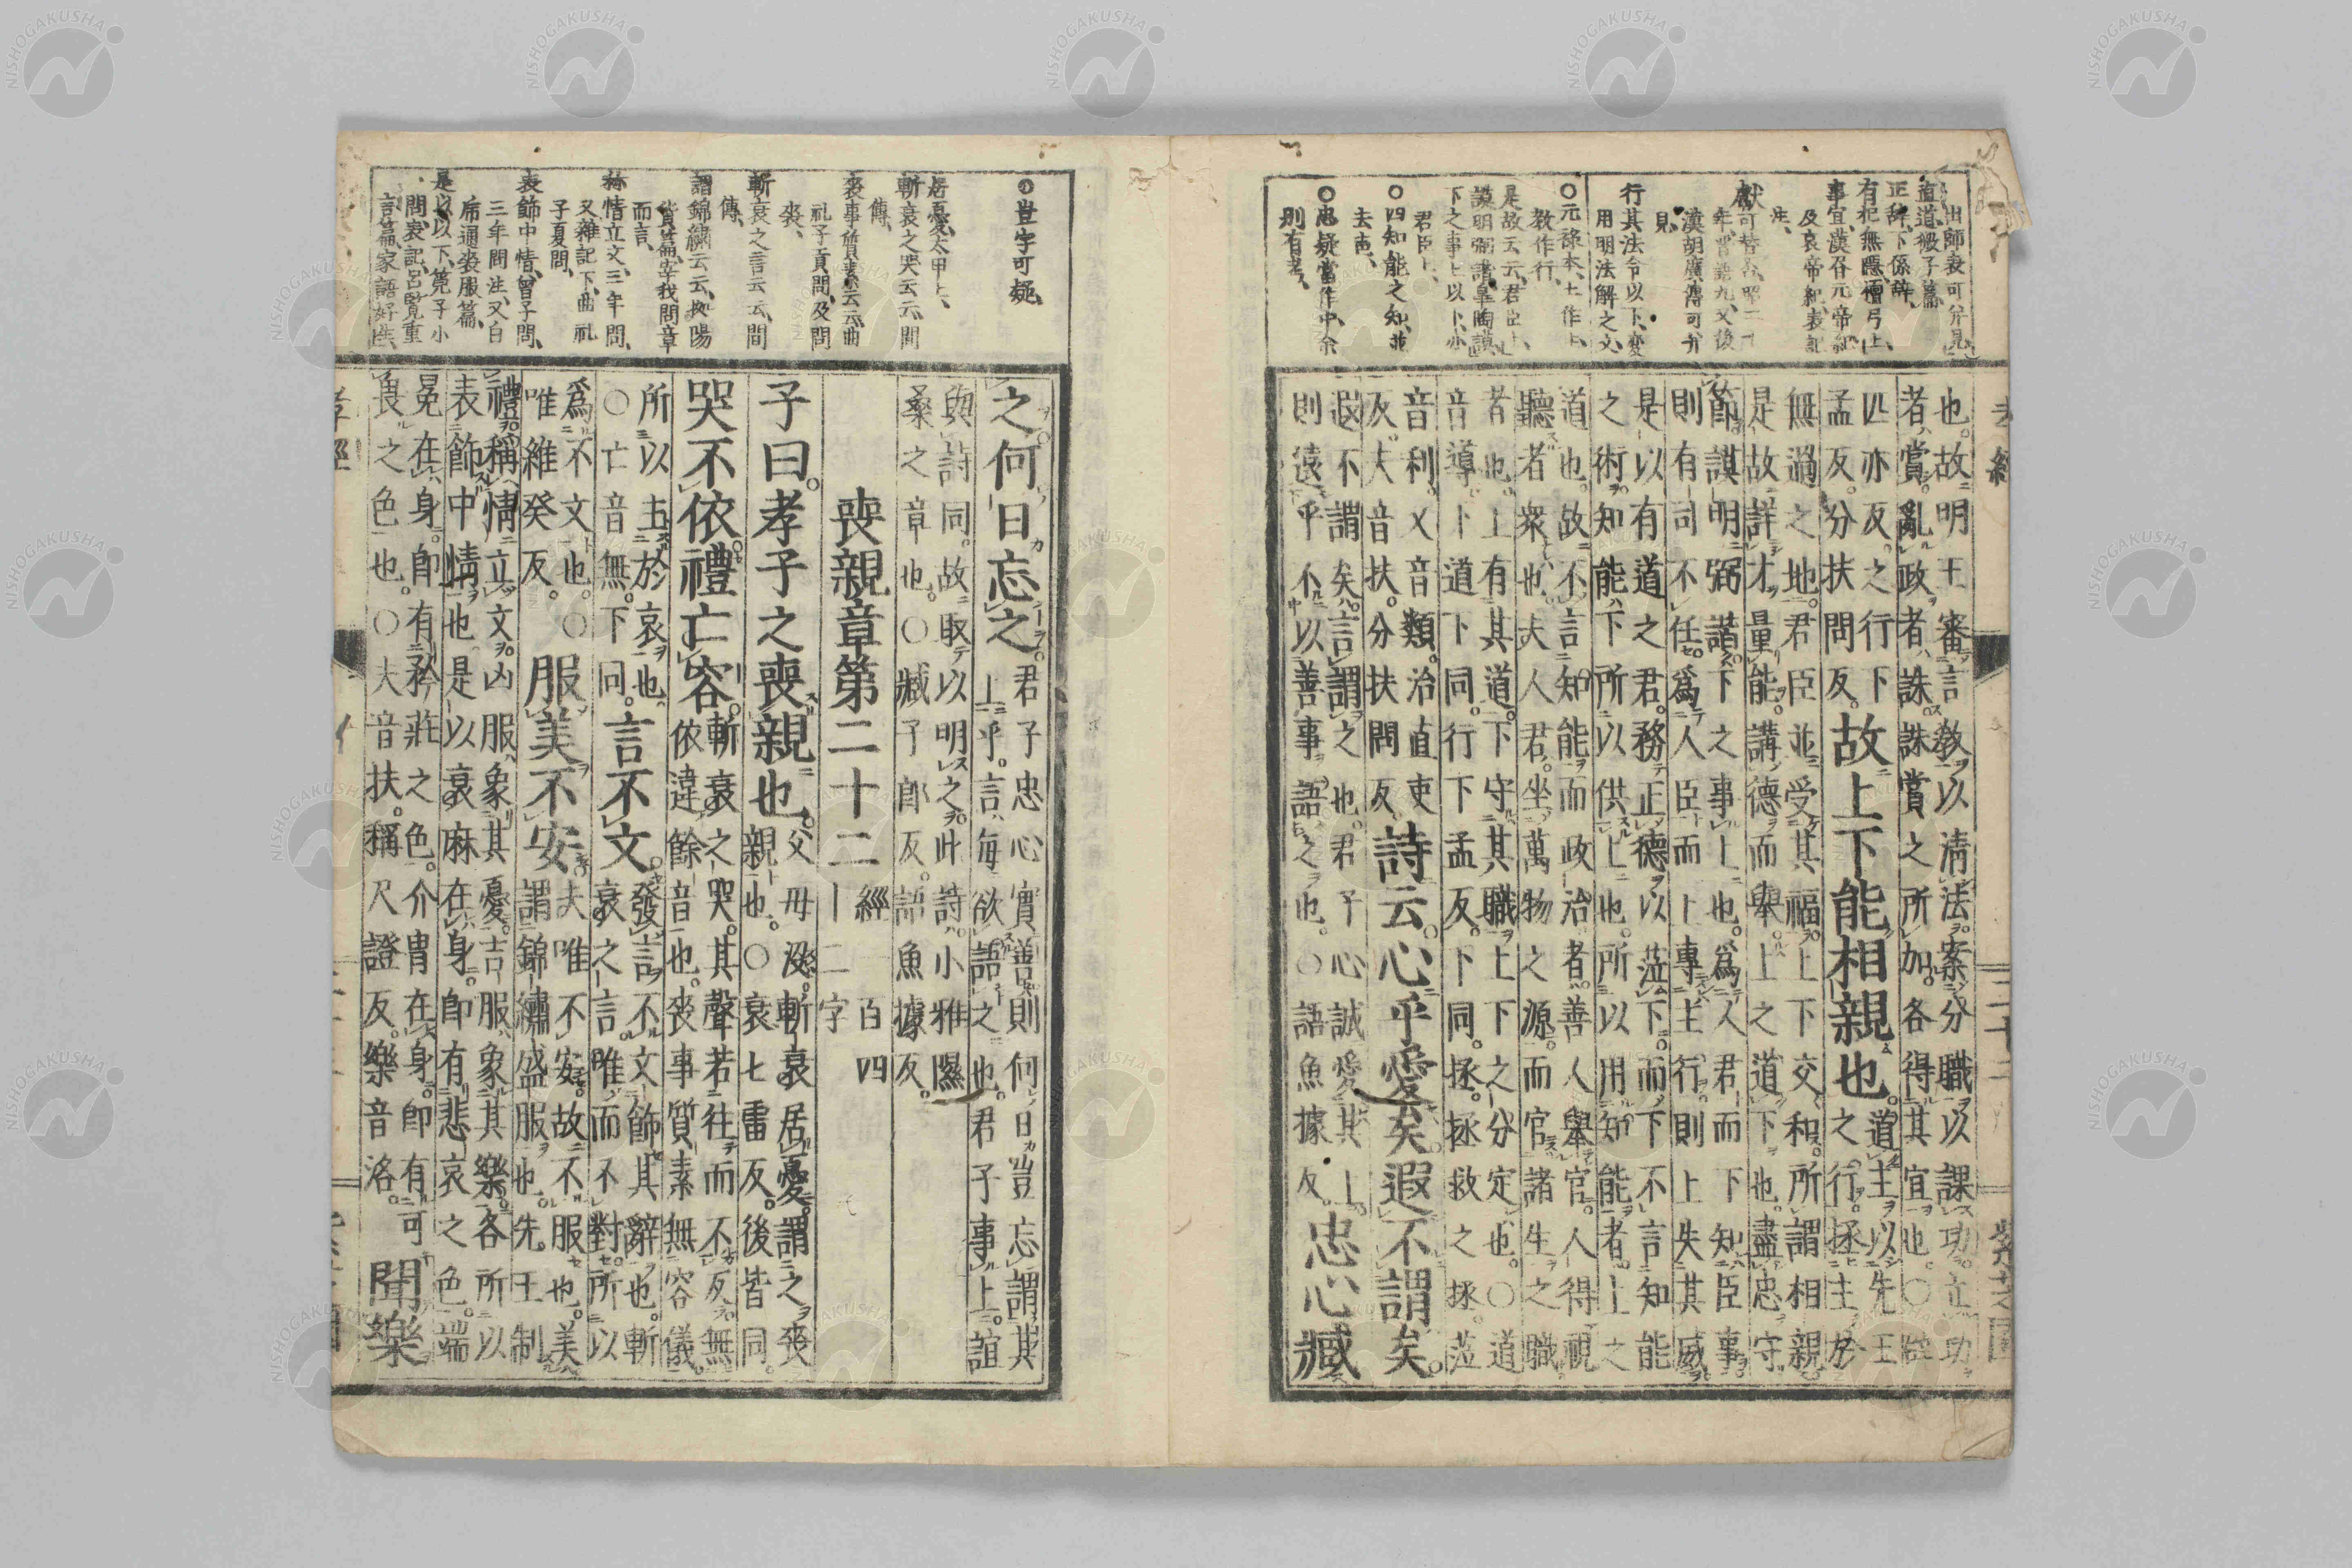 出師表可幷見
正辭、下係辭、
有犯無隱、檀弓上
事宜、漢召元帝紀
及哀帝紀、表記
注、
獻可替否、
漢胡廣傳可幷
見
行其法令以下、變
用明法解之文、
○元祿本、上作上、
教作行、
是故云云、君臣上
謨明弼諧、皐陶謨、
下之事上以下、亦
君臣上、
○四知能之知、並
去声、
○忠疑當作中、余
別有考、
也。故明王審言教以清法。案分職以課功。立功
者賞。亂政者誅。誅賞之所加。各得其宜也。○臨
匹亦反。之行下
孟反。分扶問反。
故上下能相親也。
道主以先王
之行。拯主於
無過之地。君臣並受其福。上下交和。所謂相親
是故詳才量能。講德而舉。上之道下也。盡忠守
節。謨明弼諧。下之事上也。爲人君而下知臣事。
則有司不任。爲人臣而上專主行。則上失其威。
是以有道之君。務正德以蒞下。而下不言知能
之術。知能下所以供上也。所以用知能者。上之
道也。故不言知能而政治者。善人舉官。人得視
聽者衆也。夫人君坐萬物之源。而官諸生之職
者也。上有其道。下守其職。上下之分定也。○道
音導。上道下同。行下孟反。下同。拯。拯救之拯。蒞
音利。又音類。治直吏
反。夫音扶。分扶問反。
詩云。心乎愛矣。遐不謂矣。
遐不謂矣。言謂之也。君子心誠愛其上。
則遠乎不以善事語之也。○語魚據反。
忠心臧
○豈字可疑、
居憂、太甲上、
斬衰之哭云云、間
傳、
喪事質素云云、曲
礼子貢問、及問
喪、
斬衰之言云云、間
傳、
謂錦繡云云、拠陽
貨篇、宰我問章
而言、
称情立文、三年問、
又雜記下、曲礼
子夏問、
表飾中情、曾子問、
三年問注、又白
虎通喪服篇、
是以以下、筦子小
問、表記、呂覽重
言篇、家語好生、
之何日忘之。
君子忠心實善。則何日豈忘謂其
上乎。言每欲語之也。君子事上。誼
與詩同。故取以明之。此詩小雅隰
桑之章也。○臧子郎反。語魚據反。
喪親章第二十二
經一百四
十二字
子曰。孝子之喪親也。
父母沒。斬衰居憂。謂之喪
親也。○衰七雷反。後皆同。
哭不依。禮亡容。
斬衰之哭。其聲若往而不反。無
依違餘音也。喪事質素無容儀。
所以主於哀也
○亡音無。下同。
言不文。
發言不文飾其辭也。斬
衰之言。唯而不對。所以
爲不文也。○
唯維癸反。
服美不安。
夫唯不安。故不服也。美
謂錦繡盛服也。先王制
禮稱情立文。凶服象其憂。吉服象其樂。各所以
表飾中情也。是以衰麻在身。即有悲哀之色。端
冕在身。即有矜莊之色。介冑在身。即有可
畏之色也。○夫音扶。稱尺證反。樂音洛。
聞樂
NISHOGAKUSHA